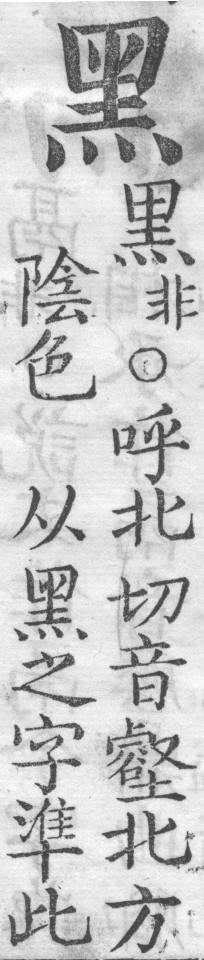 黑
黒非○呼北切音壑北方
陰色 从黑之字準此